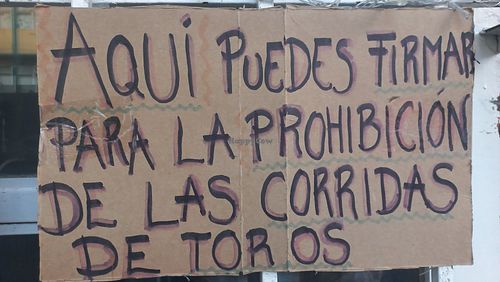 AQUI PUEDES FIRMAR
PARA LA PROHIBICIÓN
DE LAS CORRIDAS
DE TOROS